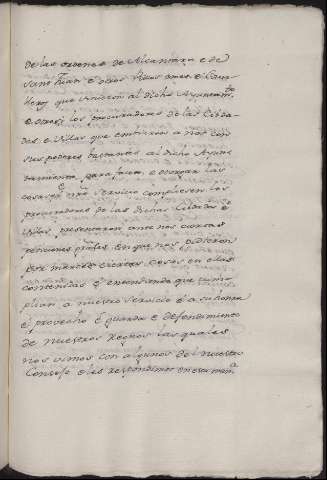 de las ordenes de Alcantara e de
Sant Juan e otros Ricos omes e Cava-
lleros que vinieron al dicho Ayuntamto
e otrosi los procuradores de las Cibda-
des e Villas que embiaron a nos con
sus poderes bastantes al dicho Ayun-
tamiento para facer, e otorgar las
cosas q̃ nro servicio compliesen los
procuradores de las dichas Cibdades e
Villas presentaron ante nos ciertas
peticiones en que nos pidieron
ciertas cosas en ellas
contenidas q̃ entendiendo que cum-
plian a nuestro servicio e a su honra
e provecho e guarda e defendimiento
de nuestros Regnos las quales
nos vimos con algunos del nuestro
Consejo e les respondimos en esta mana